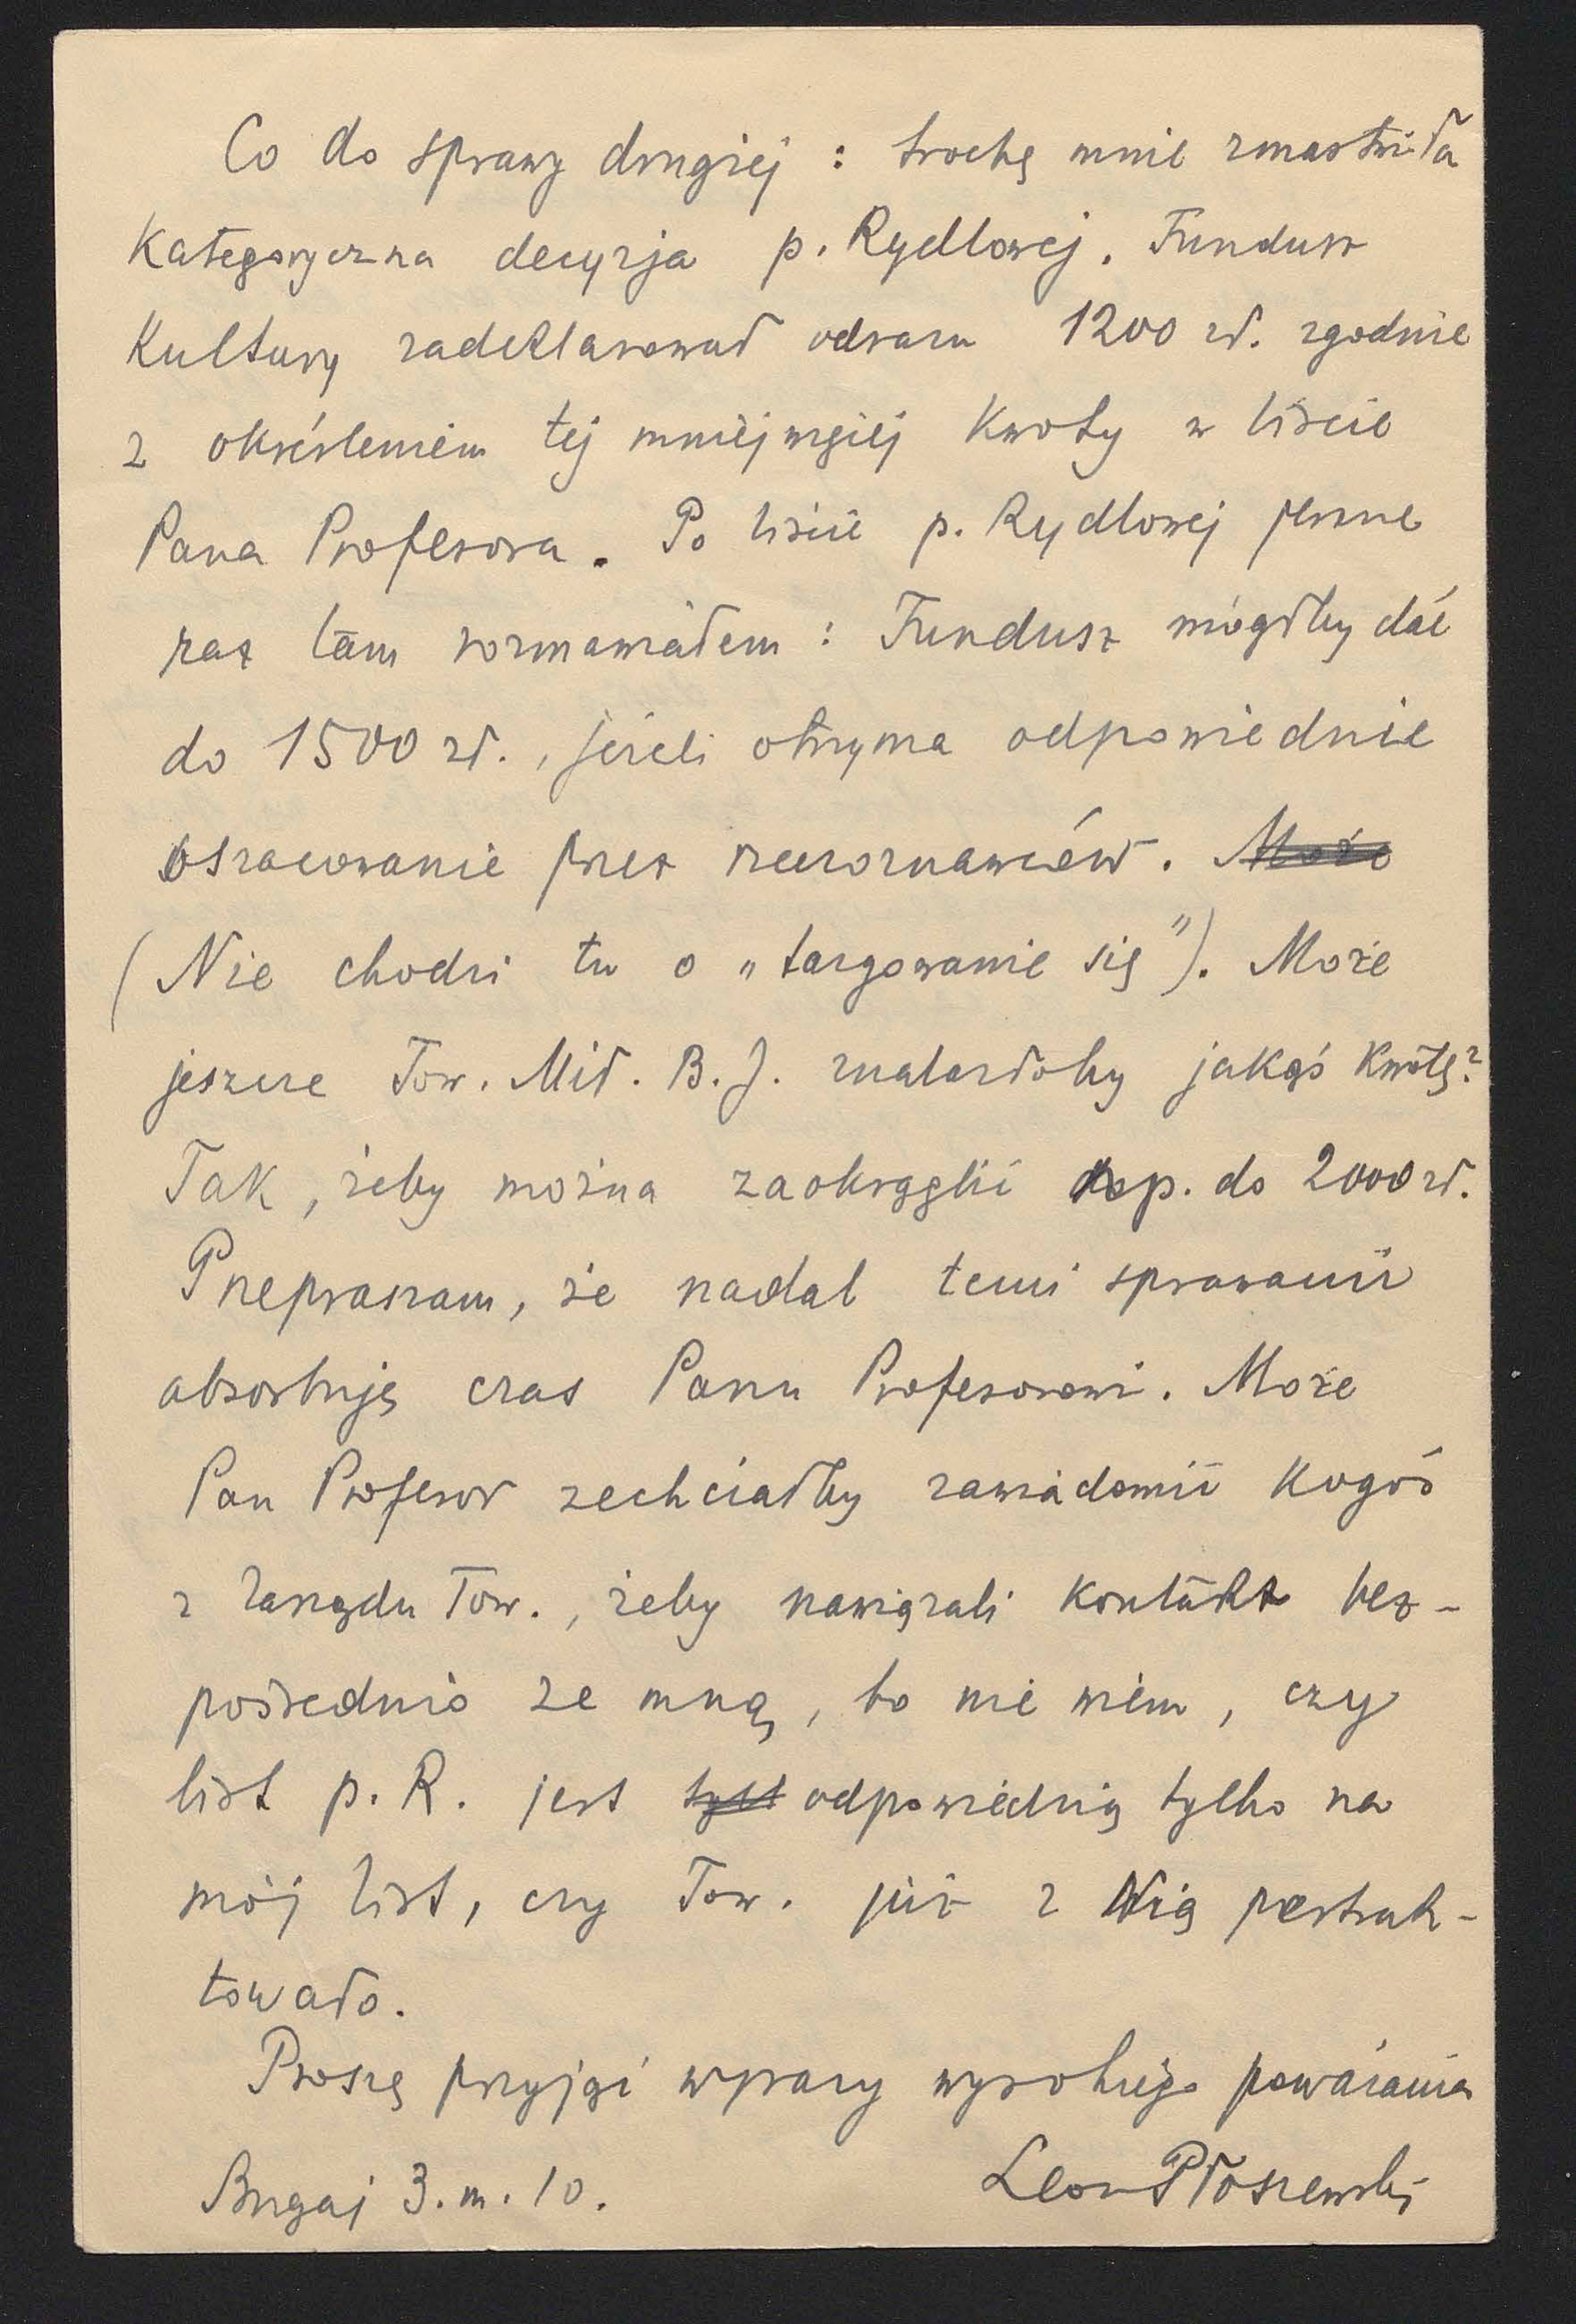 Co do sprawy drugiej : trochę mnie zmartwiła
kategoryczna decyzja p. Rydlowej. Fundusz
Kultury zadeklarował odrazu 1200 zł. zgodnie
z określeniem tej mniejwięcej kwoty w liście
Pana Profesora. Po liście p. Rydlowej jeszcze
raz tam rozmawiałem : Fundusz mógłby dać
do 1500 zł., jeżeli otrzyma odpowiednie
oszacowanie przez rzeczoznawców. Może
(Nie chodzi tu o „targowanie się"). Może
jeszcze Tow. Mił. B. J. znalazłoby jakąś kwotę?
Tak, żeby można zaokrąglić np. do 2000 zł.
Przepraszam, że nadal temi sprawami
absorbuję czas Panu Profesorowi. Może
Pan Profesor zechciałby zawiadomić kogoś
z Zarządu Tow., żeby nawiązali kontakt bez-
pośrednio ze mną, bo nie wiem, czy
list p. R. jest tylk odpowiedzią tylko na
mój list, czy Tow. już z Nią pertrak-
towało.
Proszę przyjąć wyrazy wysokiego poważania
Bugaj 3. m. 10. Leon Płoszewski